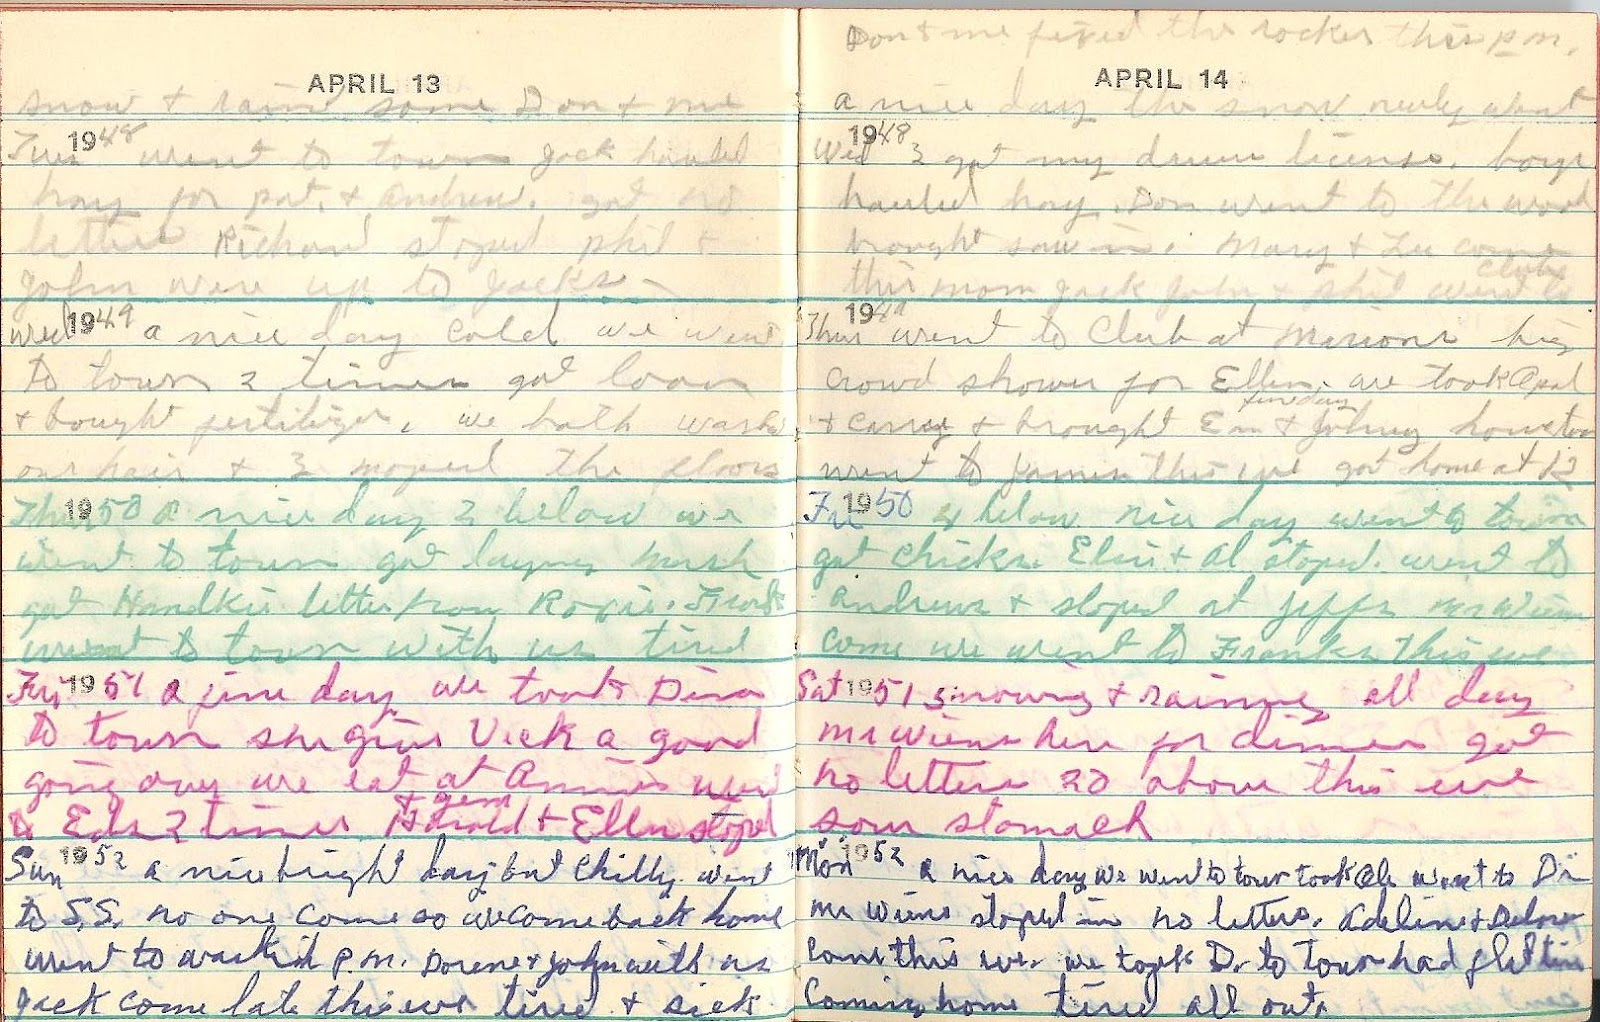 APRIL 13
snow & rain some Don & me
Tues 1948 went to town Jack hauled
hay for pat. & Andrew. got no
letter Richard stoped phil &
John were up to Jacks
Wed 1949 a nice day cold we went
to town 2 times got loan
& bought fertilizer, we both washed
our hair & I moped the floors
Thu 1950 a nice day 2 below we
went to town got laying mash
got Handkie letter from Roxie. Frank
went to town with us tired
Fri 1951 a fine day we took Dina
to town she give Vick a good
going over we eat at Annies went
to Eds 2 times Harold & Ellen stoped
& Gem
Sun 1952 a nice bright day but chilly went
to S.S. no one come so we come back home
went to wask in p.m. Dorene & John with us
Jack come late this eve tired & sick
Don & me fixed the rocker this p.m.
APRIL 14
a nice day the snow nearly about
Wed 1948 I got my drivers license. boys
hauled hay. Don went to the wood
brought saw in. Mary & Lee come
this morn Jack John & phil went to
Club
Thurs 1949 went to Club at Marions big
crowd shower for Ellen. we took Opal
fine day
& Carrey & brought Em & Johney home too
went to James this eve got home at 12
Fri 1950 2 below nice day went to town
got chicks. Elsie & Al stoped. went to
Andrews & stoped at Jeffs Mr Wiens
come we went to Franks this eve
Sat 1951 snowing & raining all day
Mr Wiens here for dinner got
no letters 20 above this eve
sour stomach
Mon 1952 a nice day we went to town took went to Dr
Mr Wiens stoped in no letters. Adeline & Delores
come this eve. we took D. to town had flat tire
coming home tired all out.